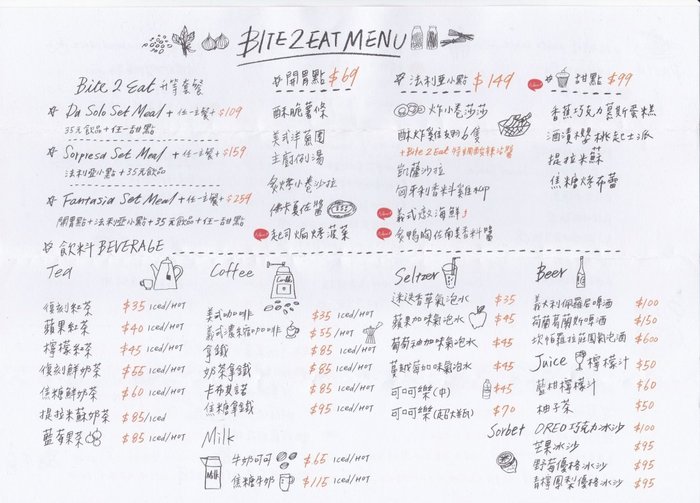 BITE2EAT MENU
Bite 2 Eat 升等套餐
Da Solo Set Meal + 任一主餐 + $109
35元飲品 + 任一甜點
Sorpresa Set Meal + 任一主餐 + $159
法利亞小點 + 35元飲品
Fantasia Set Meal + 任一主餐 + $259
開胃點 + 法利亞小點 + 35元飲品 + 任一甜點
開胃點 $69
酥脆薯條
美式洋蔥圈
主廚例湯
炙烤小卷沙拉
佛卡夏佐醬
起司焗烤菠菜
法利亞小點 $149
炸小卷莎莎
酥炸雞翅6隻
+ Bite 2 Eat 特調酸辣沾醬
凱薩沙拉
匈牙利香料雞cup
義式激海鮮
炙鴨胸佐南美香料醬
甜點 $99
香蕉巧克力慕斯蛋糕
酒漬櫻桃起士派
提拉米蘇
焦糖烤布蕾
飲料 BEVERAGE
Tea
復刻紅茶 $35 iced/HOT
蘋果紅茶 $40 iced/HOT
檸檬紅茶 $45 iced/HOT
復刻鮮奶茶 $55 iced/HOT
焦糖鮮奶茶 $60 iced/HOT
提拉米蘇奶茶 $85/iced
藍莓果茶 $85 iced/HOT
Coffee
美式咖啡 $35 iced/HOT
美式濃縮咖啡 $55 iced/HOT
拿鐵 $85 iced/HOT
奶茶拿鐵 $85 iced/HOT
卡布其諾 $85 iced/HOT
焦糖拿鐵 $95 iced/HOT
Milk
牛奶可可 $65 iced/HOT
焦糖牛奶 $115 iced/HOT
Seltzer
迷迭香氣泡水 $35
蘋果加味氣泡水 $45
葡萄柚加味氣泡水 $45
蔓越莓加味氣泡水 $45
可口可樂(中) $45
可口可樂(超大瓶) $70
Beer
義大利佩羅尼啤酒 $100
荷蘭葛蘭斯啤酒 $150
坎帕羅拉莊園氣泡酒 $600
Juice 檸檬汁 $50
藍柑檸檬汁 $60
柚子茶 $50
Sorbet OREO巧克力冰沙 $100
芒果冰沙 $95
野莓優格冰沙 $95
青檸鳳梨優格冰沙 $95